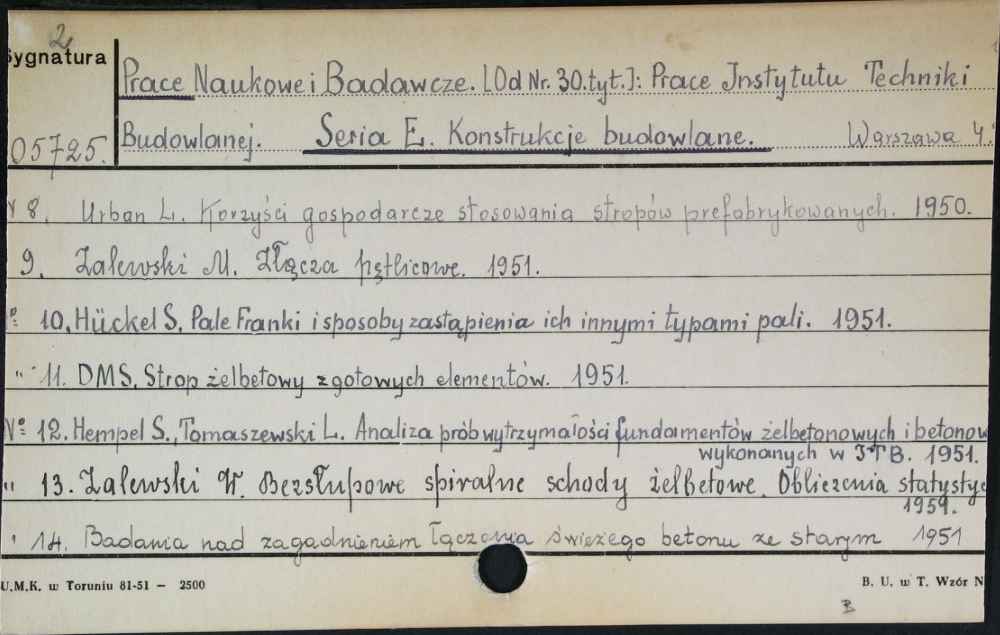 2
Sygnatura
Prace Naukowe i Badawcze. [Od Nr. 30. tyt.]: Prace Instytutu Techniki
Budowlanej. Seria E. Konstrukcje budowlane. Warszawa 4:
05725.
N 8. Urban L. Korzyści gospodarcze stosowania stropów prefabrykowanych. 1950.
9. Zalewski M. Złącza pętlicowe. 1951.
10. Hückel S. Pale Franki i sposoby zastąpienia ich innymi typami pali. 1951.
" 11. DMS. Strop żelbetowy z gotowych elementów. 1951.
Nº 12. Hempel S., Tomaszewski L. Analiza prób wytrzymałości fundamentów żelbetonowych i betonow
wykonanych w ITB. 1951.
" 13. Zalewski W. Bezsłupowe spiralne schody żelbetowe. Obliczenia statystyc
1951.
" 14. Badania nad zagadnieniem łączenia świeżego betonu ze starym 1951
U.M.K. w Toruniu 81-51 — 2500
B. U. w T. Wzór N
B